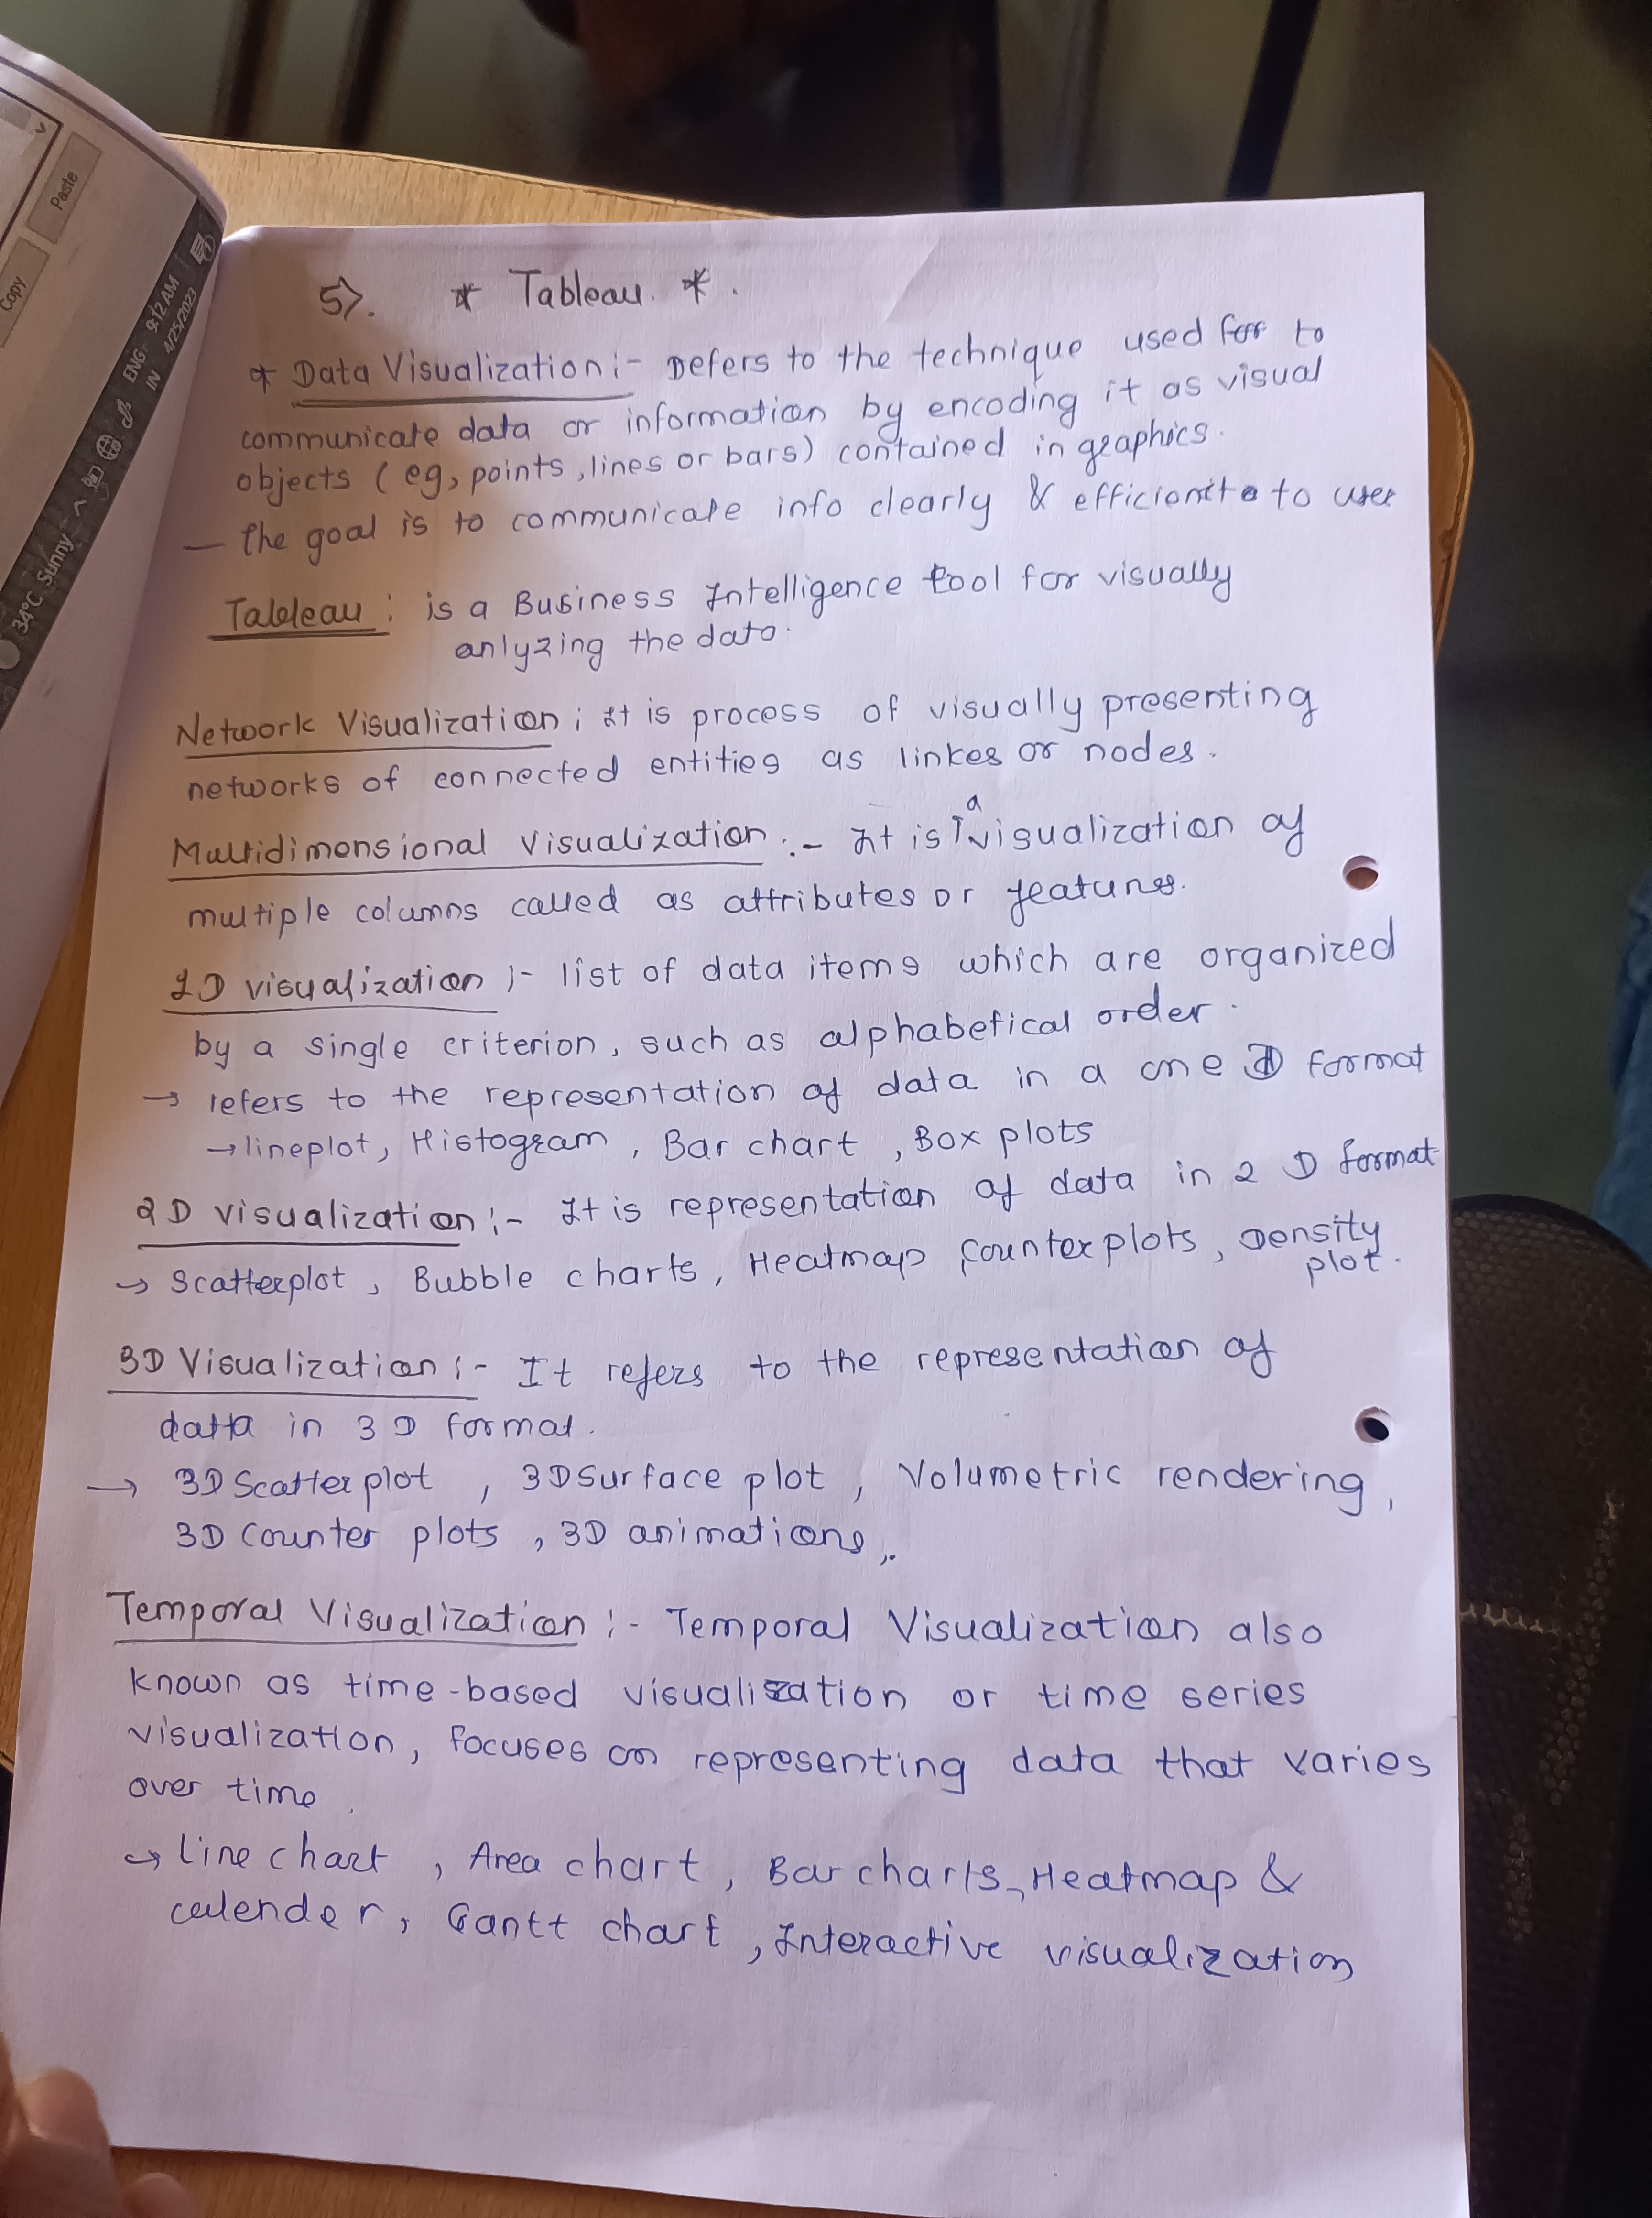 Copy
Paste
34°C Sunny
ENG
IN
9:12 AM
4/25/2023
5). * Tableau. *.
* Data Visualization :- Defers to the technique used for to
communicate data or information by encoding it as visual
objects (eg, points, lines or bars) contained in graphics.
— the goal is to communicate info clearly & to user
Tableau : is a Business Intelligence tool for visually
anlyzing the data.
Network Visualization ; It is process of visually presenting
networks of connected entities as linkes or nodes.
Multidimensional Visualization :- It is a visualization of
multiple columns called as attributes or features.
1D visualization :- list of data items which are organized
by a single criterion, such as alphabetical order.
→ refers to the representation of data in a one D format
→ lineplot, Histogram, Bar chart, Box plots
2D visualization :- It is representation of data in 2 D format
→ Scatterplot, Bubble charts, Heatmap, Counter plots, Density
plot.
3D Visualization :- It refers to the representation of
data in 3D format.
→ 3D Scatter plot, 3D Surface plot, Volumetric rendering,
3D Counter plots, 3D animations,.
Temporal Visualization :- Temporal Visualization also
known as time-based visualization or time series
visualization, focuses on representing data that varies
over time.
→ line chart, Area chart, Bar charts, Heatmap &
calender, Gantt chart, Interactive visualization